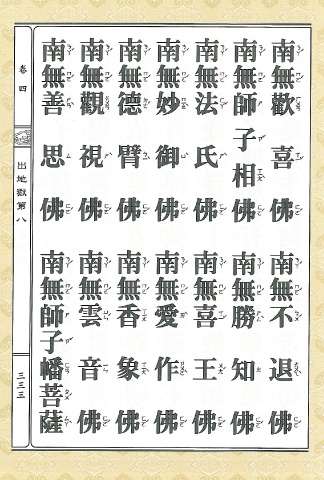 南無歡喜佛　南無不退佛
南無師子相佛　南無勝知佛
南無法氏佛　南無喜王佛
南無妙御佛　南無愛作佛
南無德臂佛　南無香象佛
南無觀視佛　南無雲音佛
南無善思佛　南無師子幡菩薩
卷四　出地獄第八　三三三